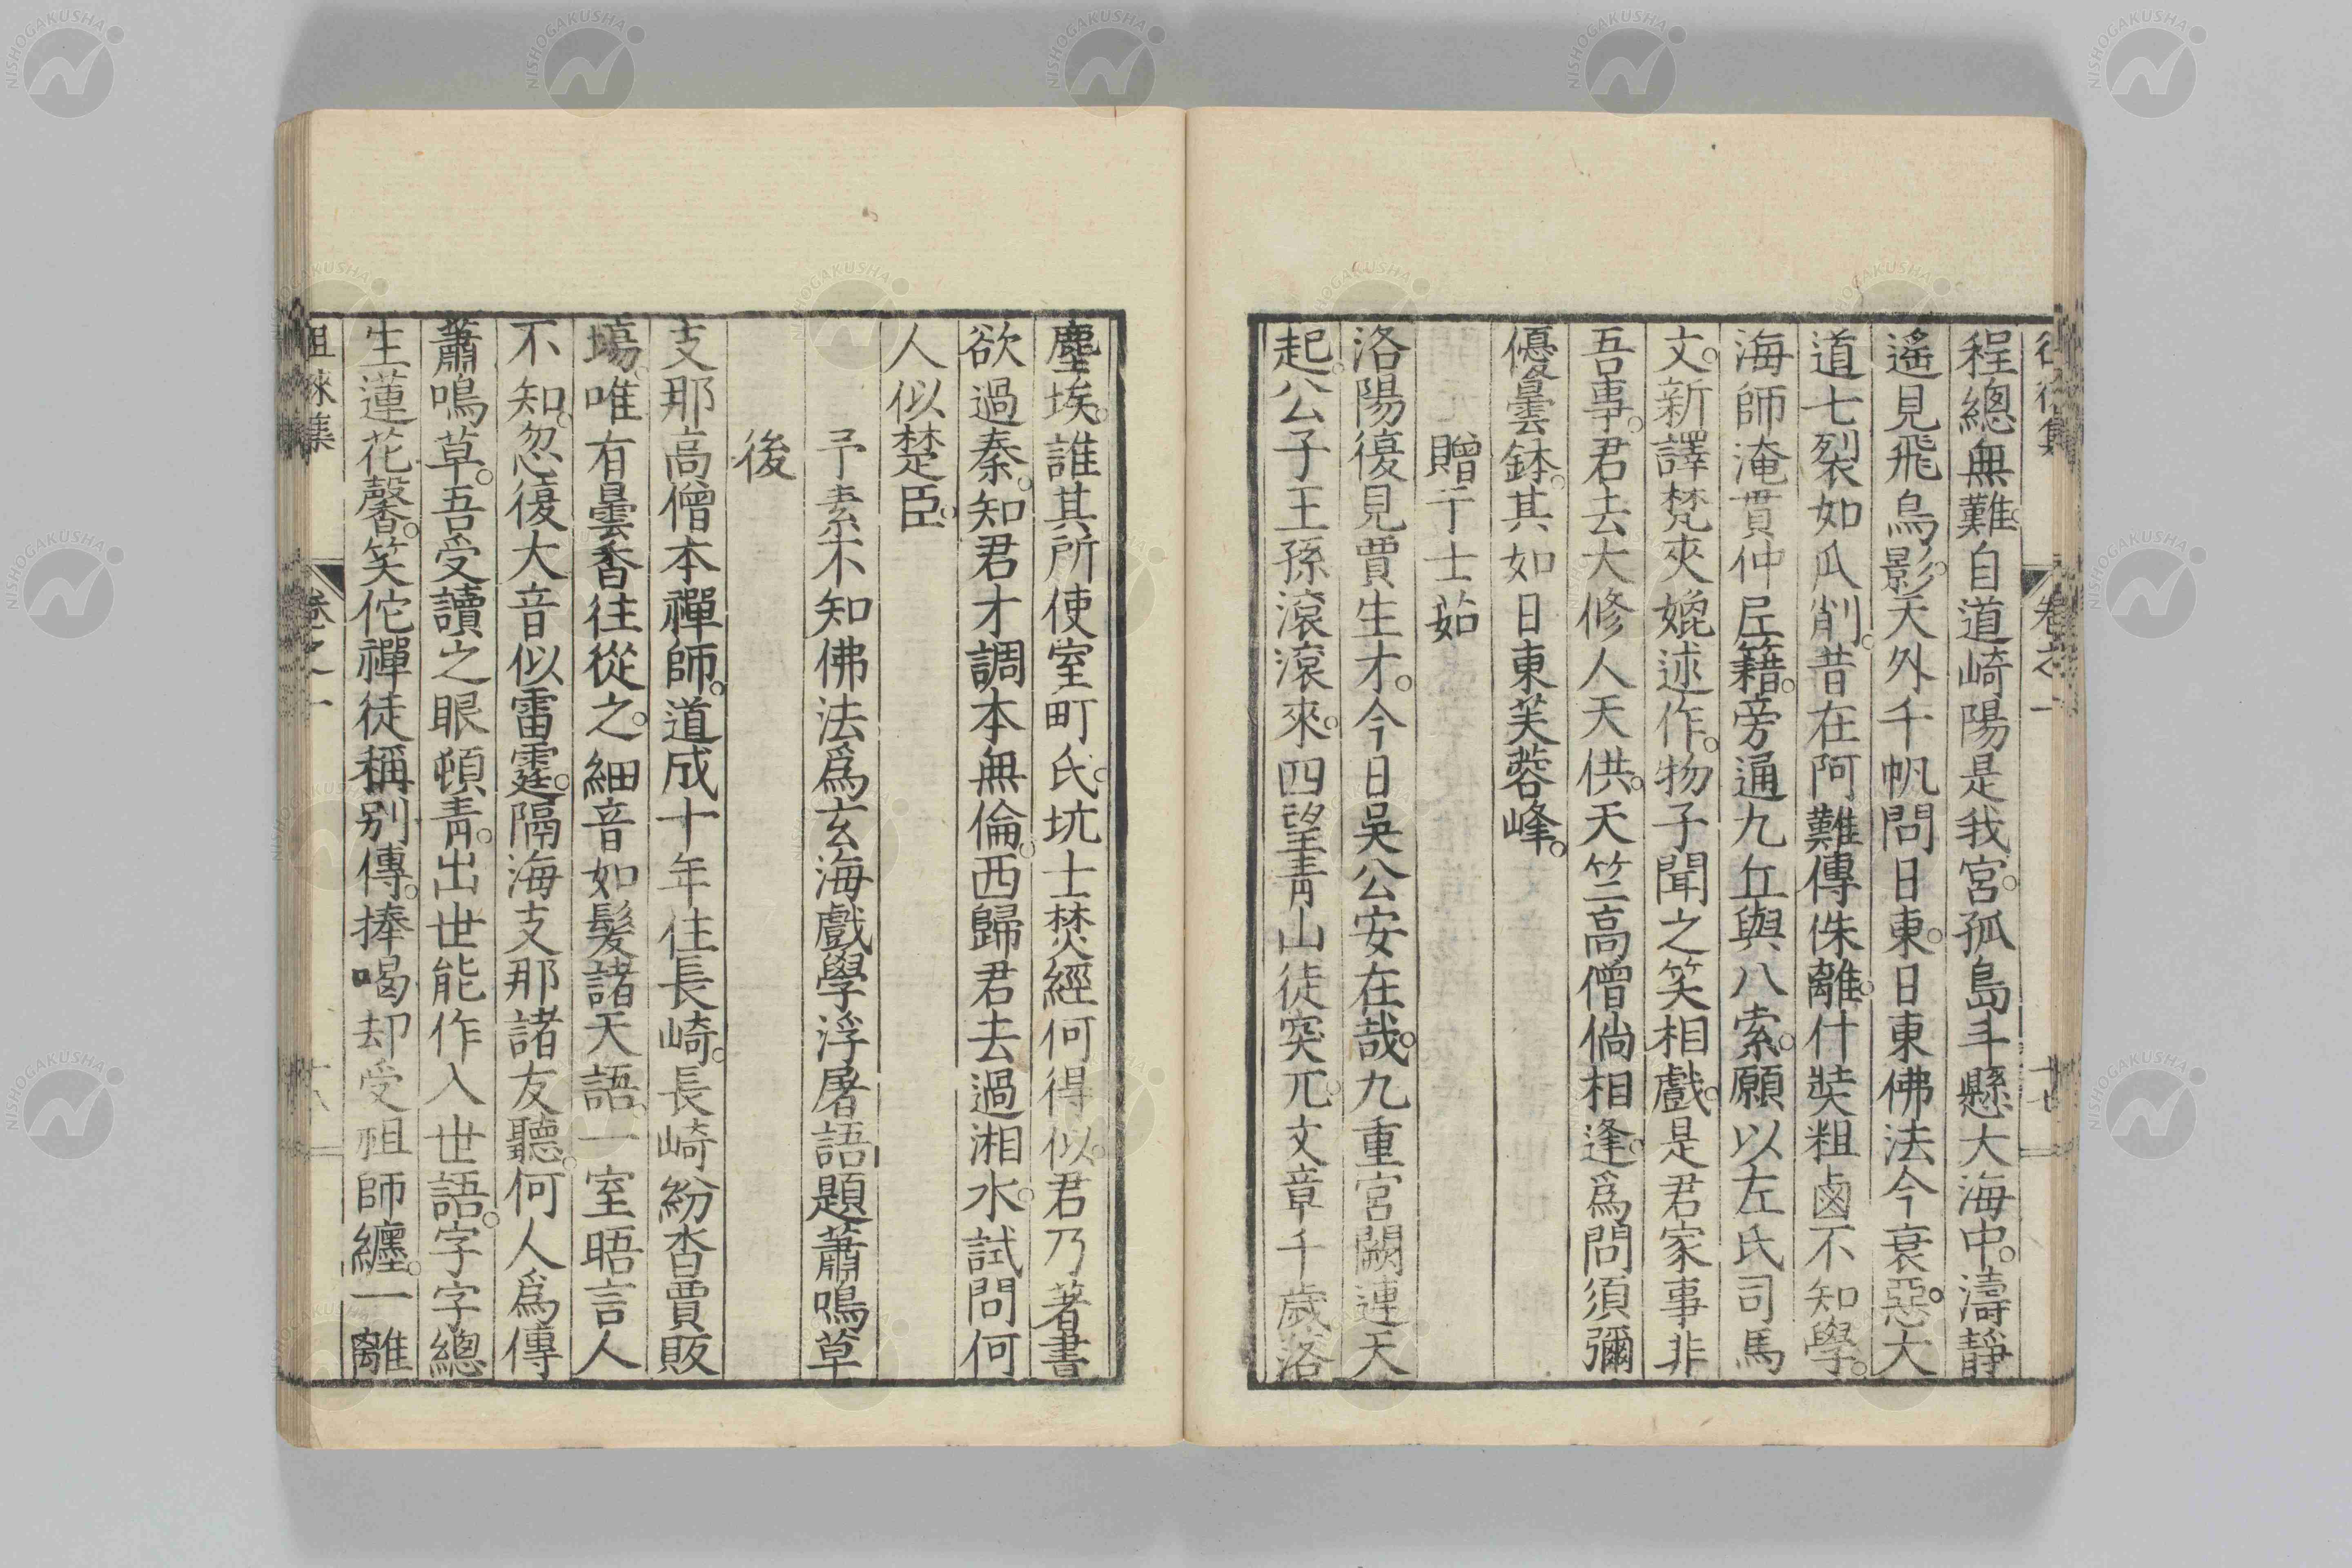 徂徠集 卷之一 十七
程總無難。自道崎陽是我宮。孤島斗懸大海中。濤靜
遙見飛鳥影。天外千帆問日東。日東佛法今衰惡。大
道七裂如瓜削。昔在阿難傳侏離。什奘粗鹵不知學。
海師淹貫仲尼籍。旁通九丘與八索。願以左氏司馬
文。新譯梵夾媲述作。物子聞之笑相戲。是君家事非
吾事。君去大修人天供。天竺高僧倘相逢。爲問須彌
優曇鉢。其如日東芙蓉峰。
贈于士茹
洛陽復見賈生才。今日吳公安在哉。九重宮闕連天
起。公子王孫滾滾來。四望青山徒突兀。文章千歲落
塵埃。誰其所使室町氏。坑士焚經何得似。君乃著書
欲過秦。知君才調本無倫。西歸君去過湘水。試問何
人似楚臣。
予素不知佛法爲玄海戲學浮屠語題蕭鳴草
後
支那高僧本禪師。道成十年住長崎。長崎紛沓賈販
塲。唯有曇香往從之。細音如髮諸天語。一室晤言人
不知。忽復大音似雷霆。隔海支那諸友聽。何人爲傳
蕭鳴草。吾受讀之眼頓青。出世能作入世語。字字總
生蓮花馨。笑佗禪徒稱別傳。捧喝却受祖師纏。一離
徂徠集 卷之一 十八